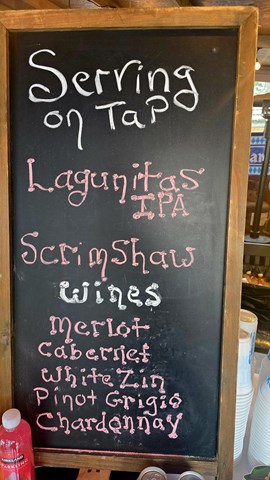 Serving
on Tap
Lagunitas
IPA
Scrimshaw
Wines
Merlot
Cabernet
White Zin
Pinot Grigio
Chardonnay